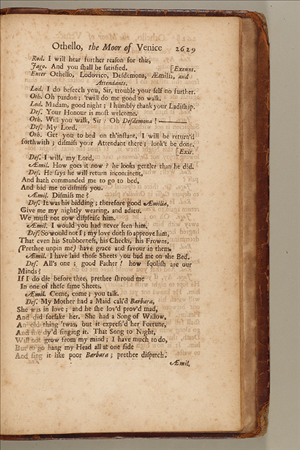 Othello, the Moor of Venice 2629
Rod. I will hear further reason for this,
Jago. And you shall be satisfied. [Exeunt.
Enter Othello, Lodovico, Desdemona, Æmilia, and
Attendants.
Lod. I do beseech you, Sir, trouble your self no further.
Oth. Oh pardon; 'twill do me good to walk.
Lod. Madam, good night; I humbly thank your Ladiship.
Des. Your Honour is most welcome.
Oth. Will you walk, Sir? Oh Desdemona!
Des. My Lord.
Oth. Get you to bed on th'instant, I will be return'd
forthwith; dismiss your Attendant there; look't be done.
[Exit.
Des. I will, my Lord.
Æmil. How goes it now? he looks gentler than he did.
Des. He says he will return incontinent,
And hath commanded me to go to bed,
And bid me to dismiss you.
Æmil. Dismiss me?
Des. It was his bidding; therefore good Æmilia,
Give me my nightly wearing, and adieu.
We must not now displease him.
Æmil. I would you had never seen him.
Des. So would not I; my love doth so approve him,
That even his Stubbornness, his Checks, his Frowns,
(Prethee unpin me) have grace and favour in them.
Æmil. I have laid those Sheets you bad me on the Bed.
Des. All's one; good Father! how foolish are our
Minds?
If I do die before thee, prethee shroud me
In one of these same Sheets.
Æmil. Come, come; you talk.
Des. My Mother had a Maid call'd Barbara,
She was in love; and he she lov'd prov'd mad,
And did forsake her. She had a Song of Willow,
An old thing 'twas, but it express'd her Fortune,
And she dy'd singing it. That Song to Night,
Will not grow from my mind; I have much to do,
But to go hang my Head all at one side
And sing it like poor Barbara; prethee dispatch.
Æmil.